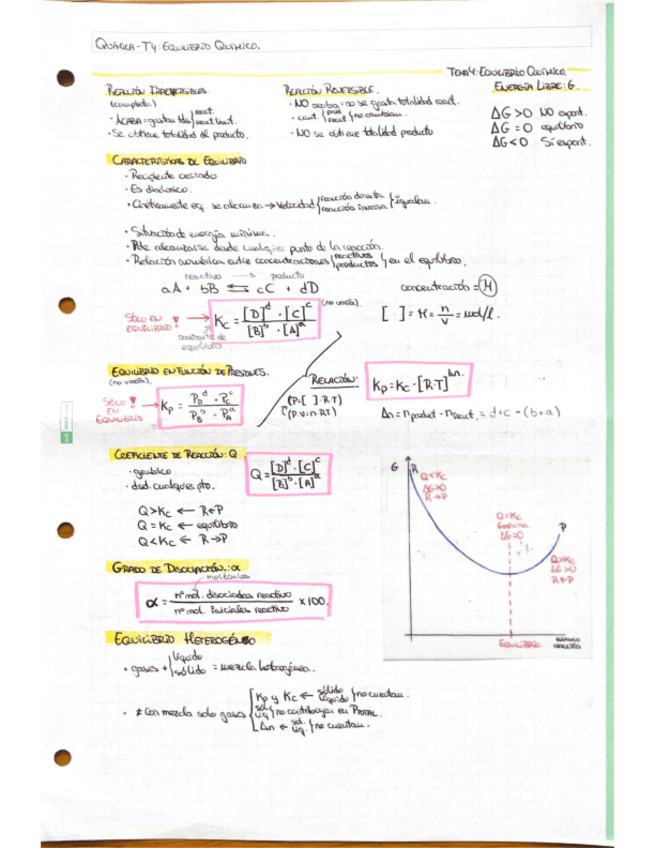 QUÍMICA - T4: EQUILIBRIO QUÍMICO.
TEMA 4: EQUILIBRIO QUÍMICO
REACCIÓN IRREVERSIBLES
(completa)
· ACABA = gastan tdo react. / react. limit.
· Se obtiene totalidad del producto.
REACCIÓN REVERSIBLE.
· NO acaba = no se gasta totalidad react.
· cant. prod. / react. no cambian.
· NO se obtiene totalidad producto
ENERGÍA LIBRE: G.
ΔG > 0 NO espont.
ΔG = 0 equilibrio
ΔG < 0 Sí espont.
CARACTERÍSTICAS DE EQUILIBRIO
· Recipiente cerrado
· Es dinámico.
· Cinéticamente eq. se alcanza → Velocidad reacción directa / reacción inversa igualan.
· Situación de energía mínima.
· Pde alcanzarse desde cualquier punto de la reacción.
· Relación numérica entre concentraciones reactivos / productos en el equilibrio.
reactivo → producto
aA + bB ⇆ cC + dD
concentración = M
SÓLO EN EQUILIBRIO! → Kc = [D]^d · [C]^c / [B]^b · [A]^a (no varía).
constante de equilibrio
[ ] = M = n/V = mol/l.
EQUILIBRIO EN FUNCIÓN DE PRESIONES.
(no varía).
SÓLO EN EQUILIBRIO ! → Kp = P_D^d · P_C^c / P_B^b · P_A^a
RELACIÓN:
(P = [ ] · R · T)
(P·V = n·R·T)
Kp = Kc · [R·T]^Δn.
Δn = n product - n react. = d + c - (b + a)
COEFICIENTE DE REACCIÓN: Q
· genérico
· dsd. cualquier pto.
Q = [D]^d · [C]^c / [B]^b · [A]^a
Q > Kc ← R←P
Q = Kc ← equilibrio
Q < Kc ← R→P
G
R
Q<Kc
ΔG>0
R→P
Q=Kc
Gmínima
ΔG=0
P
Q>Kc
ΔG>0
R←P
EQUILIBRIO
GRADO DE DISOCIACIÓN: α
moléculas
α = nº mol. disociadas reactivo / nº mol. iniciales reactivo × 100.
EQUILIBRIO HETEROGÉNEO
· gases + líquido / sólido = mezcla heterogénea.
· ≠ con mezcla solo gases
Kp y Kc ← sólido / líquido no cuentan.
sol / líq no contribuyen en P TOTAL.
Δn ← sol. / líq. no cuentan.